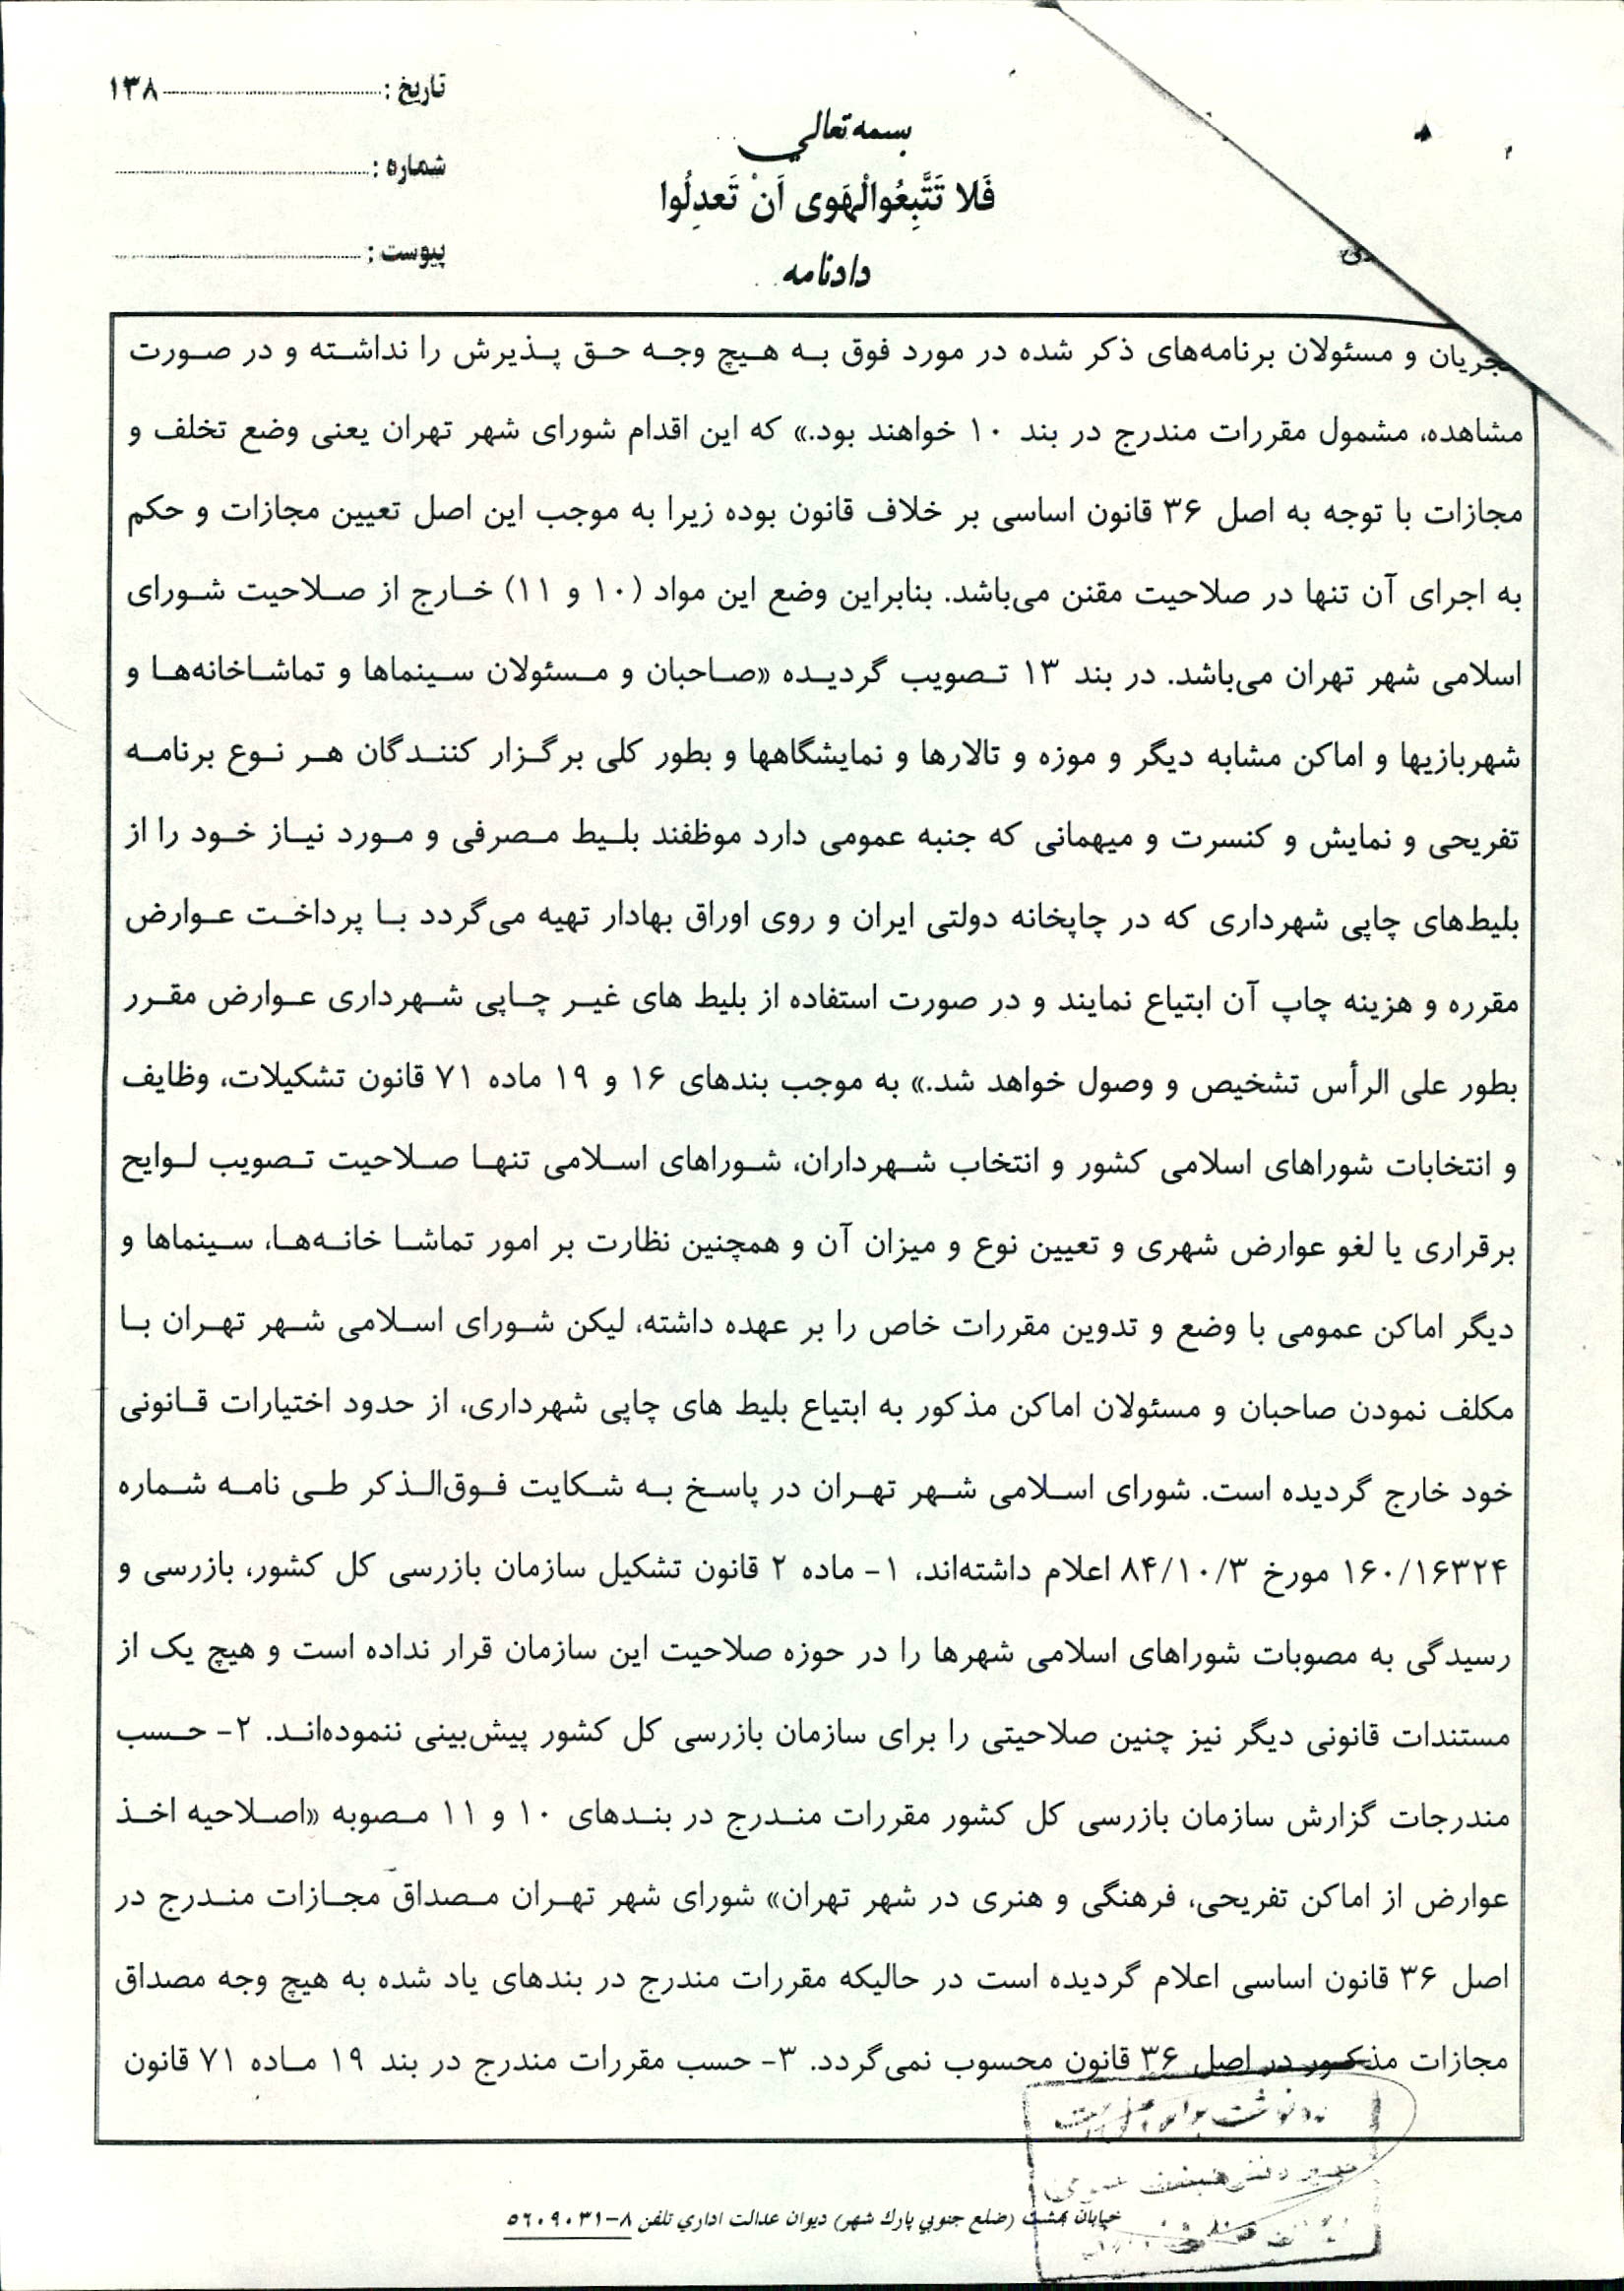 تاریخ : ۱۳۸
شماره :
پیوست :
بسمه تعالي
فَلا تَتَّبِعُوالْهَوی اَنْ تَعدِلُوا
دادنامه
مجریان و مسئولان برنامه‌های ذکر شده در مورد فوق به هیچ وجه حق پذیرش را نداشته و در صورت
مشاهده، مشمول مقررات مندرج در بند ۱۰ خواهند بود.» که این اقدام شورای شهر تهران یعنی وضع تخلف و
مجازات با توجه به اصل ۳۶ قانون اساسی بر خلاف قانون بوده زیرا به موجب این اصل تعیین مجازات و حکم
به اجرای آن تنها در صلاحیت مقنن می‌باشد. بنابراین وضع این مواد (۱۰ و ۱۱) خارج از صلاحیت شورای
اسلامی شهر تهران می‌باشد. در بند ۱۳ تصویب گردیده «صاحبان و مسئولان سینماها و تماشاخانه‌ها و
شهربازیها و اماکن مشابه دیگر و موزه و تالارها و نمایشگاهها و بطور کلی برگزار کنندگان هر نوع برنامه
تفریحی و نمایش و کنسرت و میهمانی که جنبه عمومی دارد موظفند بلیط مصرفی و مورد نیاز خود را از
بلیط‌های چاپی شهرداری که در چاپخانه دولتی ایران و روی اوراق بهادار تهیه می‌گردد با پرداخت عوارض
مقرره و هزینه چاپ آن ابتیاع نمایند و در صورت استفاده از بلیط های غیر چاپی شهرداری عوارض مقرر
بطور علی الرأس تشخیص و وصول خواهد شد.» به موجب بندهای ۱۶ و ۱۹ ماده ۷۱ قانون تشکیلات، وظایف
و انتخابات شوراهای اسلامی کشور و انتخاب شهرداران، شوراهای اسلامی تنها صلاحیت تصویب لوایح
برقراری یا لغو عوارض شهری و تعیین نوع و میزان آن و همچنین نظارت بر امور تماشا خانه‌ها، سینماها و
دیگر اماکن عمومی با وضع و تدوین مقررات خاص را بر عهده داشته، لیکن شورای اسلامی شهر تهران با
مکلف نمودن صاحبان و مسئولان اماکن مذکور به ابتیاع بلیط های چاپی شهرداری، از حدود اختیارات قانونی
خود خارج گردیده است. شورای اسلامی شهر تهران در پاسخ به شکایت فوق‌الذکر طی نامه شماره
۱۶۰/۱۶۳۲۴ مورخ ۸۴/۱۰/۳ اعلام داشته‌اند، ۱- ماده ۲ قانون تشکیل سازمان بازرسی کل کشور، بازرسی و
رسیدگی به مصوبات شوراهای اسلامی شهرها را در حوزه صلاحیت این سازمان قرار نداده است و هیچ یک از
مستندات قانونی دیگر نیز چنین صلاحیتی را برای سازمان بازرسی کل کشور پیش‌بینی ننموده‌اند. ۲- حسب
مندرجات گزارش سازمان بازرسی کل کشور مقررات مندرج در بندهای ۱۰ و ۱۱ مصوبه «اصلاحیه اخذ
عوارض از اماکن تفریحی، فرهنگی و هنری در شهر تهران» شورای شهر تهران مصداق مجازات مندرج در
اصل ۳۶ قانون اساسی اعلام گردیده است در حالیکه مقررات مندرج در بندهای یاد شده به هیچ وجه مصداق
مجازات مذکور در اصل ۳۶ قانون محسوب نمی‌گردد. ۳- حسب مقررات مندرج در بند ۱۹ ماده ۷۱ قانون
خیابان بهشت (ضلع جنوبي پارك شهر) دیوان عدالت اداري تلفن ۸-٥٦٠٩٠٣١